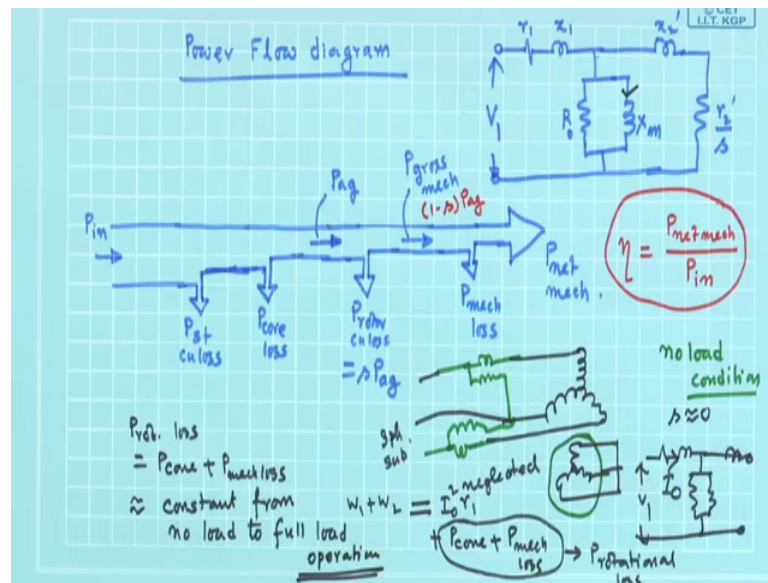 © CET
I.I.T. KGP
Power Flow diagram
r₁ x₁ x₂'
V₁
R₀
Xm
r₂'/s
Pin
Pag
Pgross mech
(1-s) Pag
Pnet mech.
η = Pnet mech / Pin
Pst cu loss
Pcore loss
Protor cu loss
= s Pag
Pmech loss
no load
condition
s ≈ 0
Prot. loss
= Pcore + Pmech loss
≈ constant from
no load to full load
operation
3ph.
sub
W₁ + W₂ = I₀² r₁ neglected
+ Pcore + Pmech loss → Protational loss
V₁
I₀